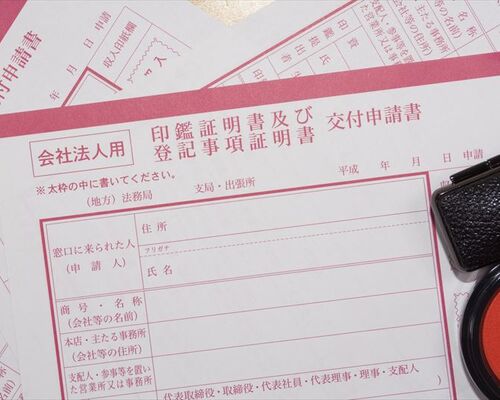 付申請書
年 月 日 申請
収入印紙欄
印鑑証明書及び
登記事項証明書 交付申請書
会社法人用
※太枠の中に書いてください。
(地方)法務局 支局・出張所 平成 年 月 日 申請
窓口に来られた人
(申請人)
住所
フリガナ
氏名
商号・名称
(会社等の名前)
本店・主たる事務所
(会社等の住所)
支配人・参事等を置い
た営業所又は事務所
代表取締役・取締役・代表社員・代表理事・理事・支配人